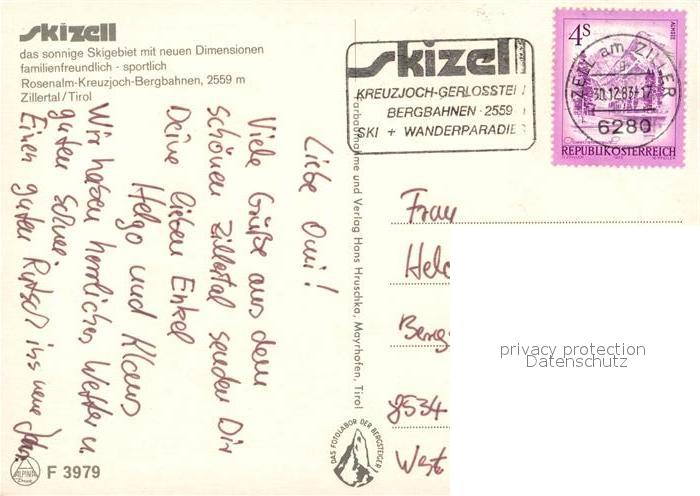 skizell
das sonnige Skigebiet mit neuen Dimensionen
familienfreundlich - sportlich
Rosenalm-Kreuzjoch-Bergbahnen, 2559 m
Zillertal/Tirol
Liebe Omi!
Viele Grüße aus dem
schönen Zillertal senden Dir
Deine lieben Enkel
Helga und Klaus
Wir haben herrliches Wetter u.
guten Schnee.
Einen guten Rutsch ins neue Jahr
ALPINA
Druck
F 3979
Farbaufnahme und Verlag Hans Hruschka, Mayrhofen, Tirol
DAS FOTOLABOR DER BERGSTEIGER
skizell
KREUZJOCH-GERLOSSTEI
BERGBAHNEN 2559
SKI + WANDERPARADIE
4S
ALMSEE
REPUBLIK ÖSTERREICH
ZELL am ZILLER
30.12.83-17
6280
Frau
Hel
Berg
8534
West
privacy protection
Datenschutz